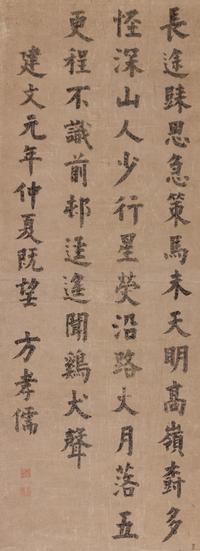 長途歸思急策馬未天明高嶺森多
怪深山人少行星熒沿路火月落五
更程不識前邨逕遙聞鷄犬聲
建文元年仲夏既望 方孝儒